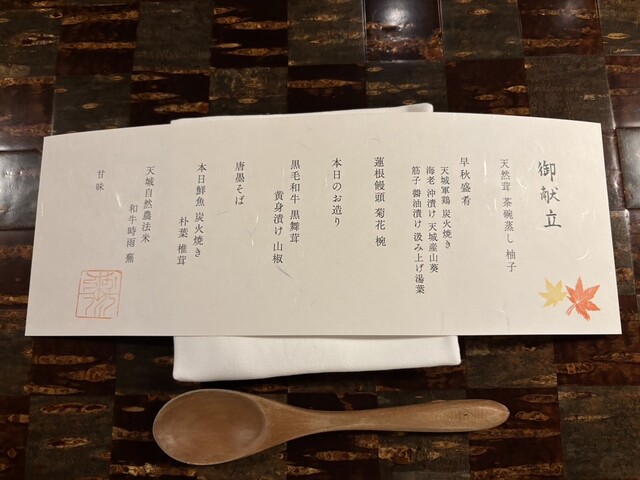 御献立
天然茸 茶碗蒸し 柚子
早秋盛肴
天城軍鶏 炭火焼き
海老 沖漬け 天城産山葵
筋子 醤油漬け 汲み上げ湯葉
蓮根饅頭 菊花 椀
本日のお造り
黒毛和牛 黒舞茸
黄身漬け 山椒
唐墨そば
本日鮮魚 炭火焼き
朴葉 椎茸
天城自然農法米
和牛時雨 蕪
甘味